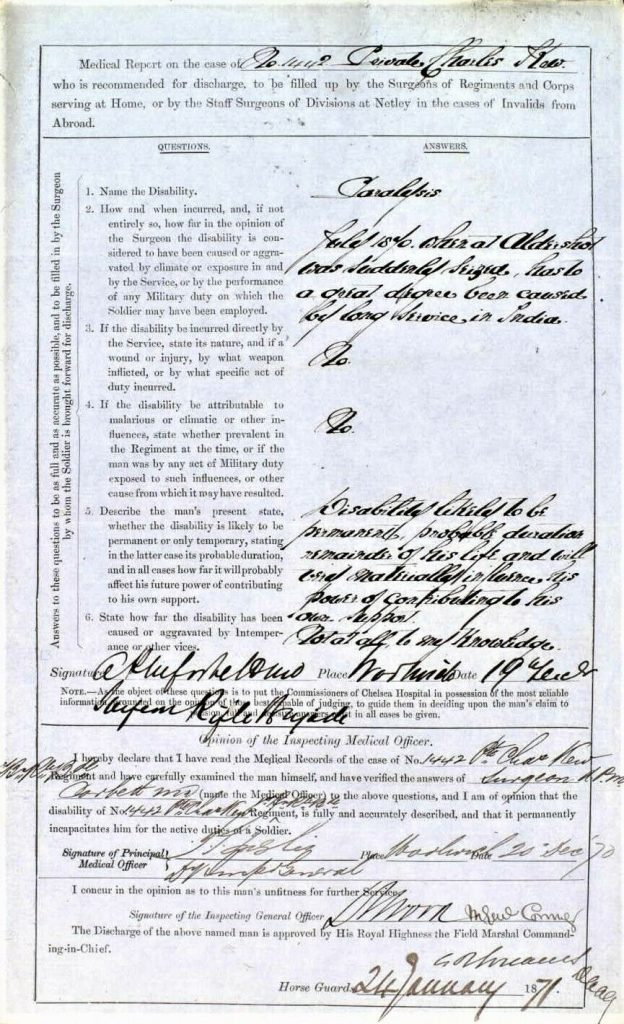 Medical Report on the case of No. 1442 Private Charles Kew.
who is recommended for discharge, to be filled up by the Surgeons of Regiments and Corps
serving at Home, or by the Staff Surgeons of Divisions at Netley in the cases of Invalids from
Abroad.
QUESTIONS. ANSWERS.
Answers to these questions to be as full and as accurate as possible, and to be filled in by the Surgeon
by whom the Soldier is brought forward for discharge.
1. Name the Disability.
Paralysis
2. How and when incurred, and, if not
entirely so, how far in the opinion of
the Surgeon the disability is con-
sidered to have been caused or aggra-
vated by climate or exposure in and
by the Service, or by the performance
of any Military duty on which the
Soldier may have been employed.
July 1870. when at Aldershot
was suddenly seized, has to
a great degree been caused
by long service in India.
3. If the disability be incurred directly by
the Service, state its nature, and if a
wound or injury, by what weapon
inflicted, or by what specific act of
duty incurred.
No.
4. If the disability be attributable to
malarious or climatic or other in-
fluences, state whether prevalent in
the Regiment at the time, or if the
man was by any act of Military duty
exposed to such influences, or other
cause from which it may have resulted.
No.
5. Describe the man's present state,
whether the disability is likely to be
permanent or only temporary, stating
in the latter case its probable duration,
and in all cases how far it will probably
affect his future power of contributing
to his own support.
Disability likely to be
permanent, probable duration
remainder of his life and will
very materially influence his
power of contributing to his
own support.
6. State how far the disability has been
caused or aggravated by Intemper-
ance or other vices.
Not at all to my knowledge.
Signature Place Woolwich Date 19th Decr
Surgeon Rifle Brigade
NOTE.—As the object of these questions is to put the Commissioners of Chelsea Hospital in possession of the most reliable
information grounded on the opinion of those best capable of judging, to guide them in deciding upon the man's claim to
pension, full and answers that in all cases be given.
Opinion of the Inspecting Medical Officer.
I hereby declare that I have read the Medical Records of the case of No. 1442 Pte Chas Kew
Regiment and have carefully examined the man himself, and have verified the answers of Surgeon
Corbett MD (name the Medical Officer) to the above questions, and I am of opinion that the
disability of No. 1442 Pte Chas Kew Regiment, is fully and accurately described, and that it permanently
incapacitates him for the active duties of a Soldier.
Signature of Principal Medical Officer
Place Woolwich Date 21 Dec '70
General
I concur in the opinion as to this man's unfitness for further Service.
Signature of the Inspecting General Officer
The Discharge of the above named man is approved by His Royal Highness the Field Marshal Command-
ing-in-Chief.
Horse Guards 24 January 1871.